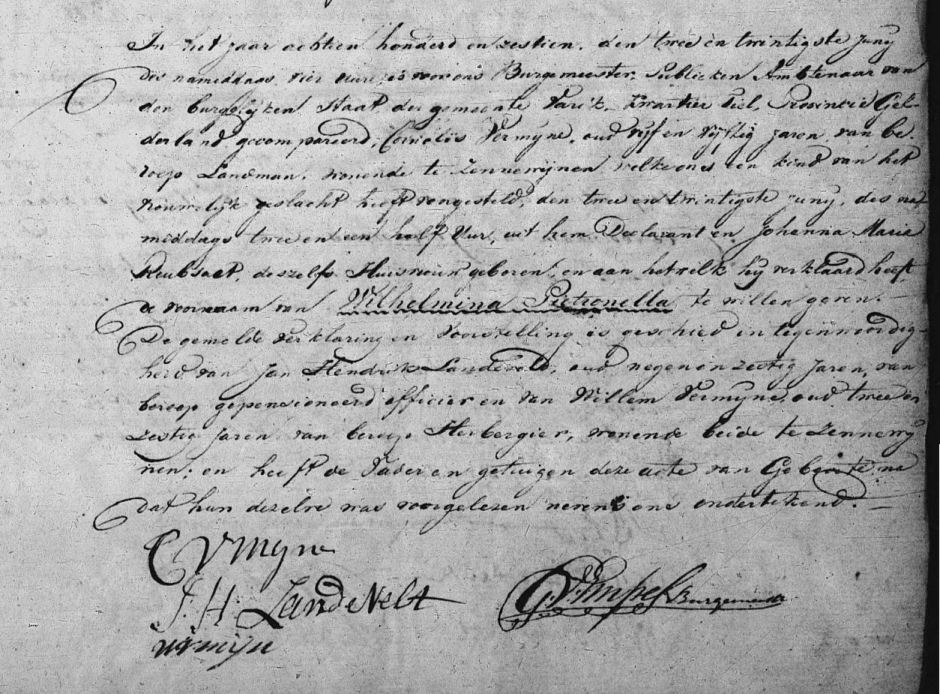 In het jaar achtien honderd en zestien, den twee en twintigste Juny
des nameddags vier uuren is voor ons Burgemeester, Publieken Ambtenaar van
den burgelijken Staat der gemeente Varik, kwartier Tiel, Provincie Gel-
derland gecompareerd, Cornelis Vermijne, oud vijf en vijftig jaren van be-
roep Landman, wonende te Zennewijnen welke ons een kind van het
vrouwelijk geslacht heeft voorgesteld, den twee en twintigste juny, des na
middags twee en een half Uur, uit hem Declarant en Johanna Maria
Reubsaet, deszelfs Huisvrouw geboren, en aan hetwelk hij verklaard heeft
de voornaam van Wilhelmina Pietronella te willen geven. —
De gemelde verklaring en voorstelling is geschied in tegenwoordig-
heid van Jan Hendrik Landeveld, oud negen en zestig Jaren, van
beroep gepensioneerd officier en van Willem Vermijne, oud twee en
zestig jaren van beroep Herbergier, wonende beide te Zennewij-
nen; en heeft de Vader en getuigen deze acte van Geboorte, na
dat hun dezelve was voorgelezen nevens ons ondertekend. —
C VMyne
J. H. LandeVelt
vermijn
Burgemeester